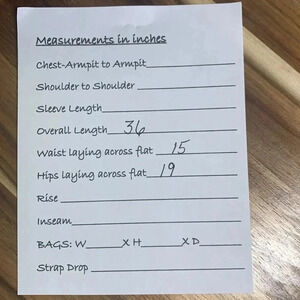 Measurements in inches
Chest-Armpit to Armpit
Shoulder to Shoulder
Sleeve Length
Overall Length 36
Waist laying across flat 15
Hips laying across flat 19
Rise
Inseam
BAGS: W X H X D
Strap Drop